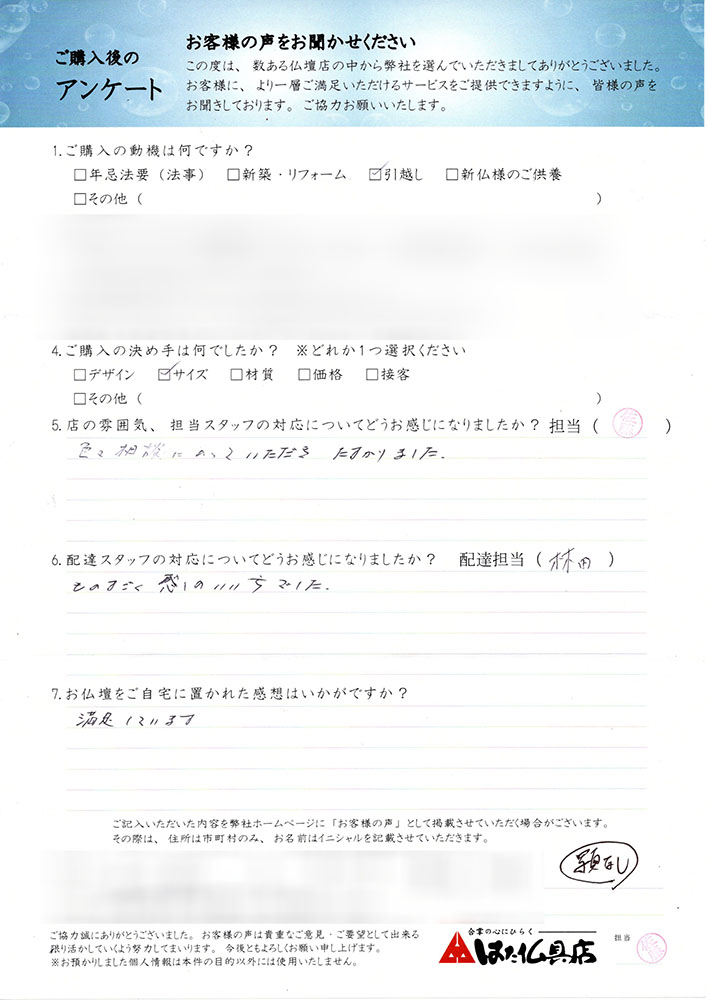 ご購入後の
アンケート
お客様の声をお聞かせください
この度は、数ある仏壇店の中から弊社を選んでいただきましてありがとうございました。
お客様に、より一層ご満足いただけるサービスをご提供できますように、皆様の声を
お聞きしております。ご協力お願いいたします。
1.ご購入の動機は何ですか？
□年忌法要（法事） □新築・リフォーム ☑引越し □新仏様のご供養
□その他（ ）
4.ご購入の決め手は何でしたか？ ※どれか1つ選択ください
□デザイン ☑サイズ □材質 □価格 □接客
□その他（ ）
5.店の雰囲気、担当スタッフの対応についてどうお感じになりましたか？ 担当（ ）
色々相談にのっていただき たすかりました.
6.配達スタッフの対応についてどうお感じになりましたか？ 配達担当（林田）
ものすごく感じのいい方でした.
7.お仏壇をご自宅に置かれた感想はいかがですか？
満足しています
ご記入いただいた内容を弊社ホームページに「お客様の声」として掲載させていただく場合がございます。
その際は、住所は市町村のみ、お名前はイニシャルを記載させていただきます。
顔なし
ご協力誠にありがとうございました。お客様の声は貴重なご意見・ご要望として出来る
限り活かしていくよう努力してまいります。今後ともよろしくお願い申し上げます。
※お預かりしました個人情報は本件の目的以外には使用いたしません。
合掌の心にひらく
はた仏具店
担当